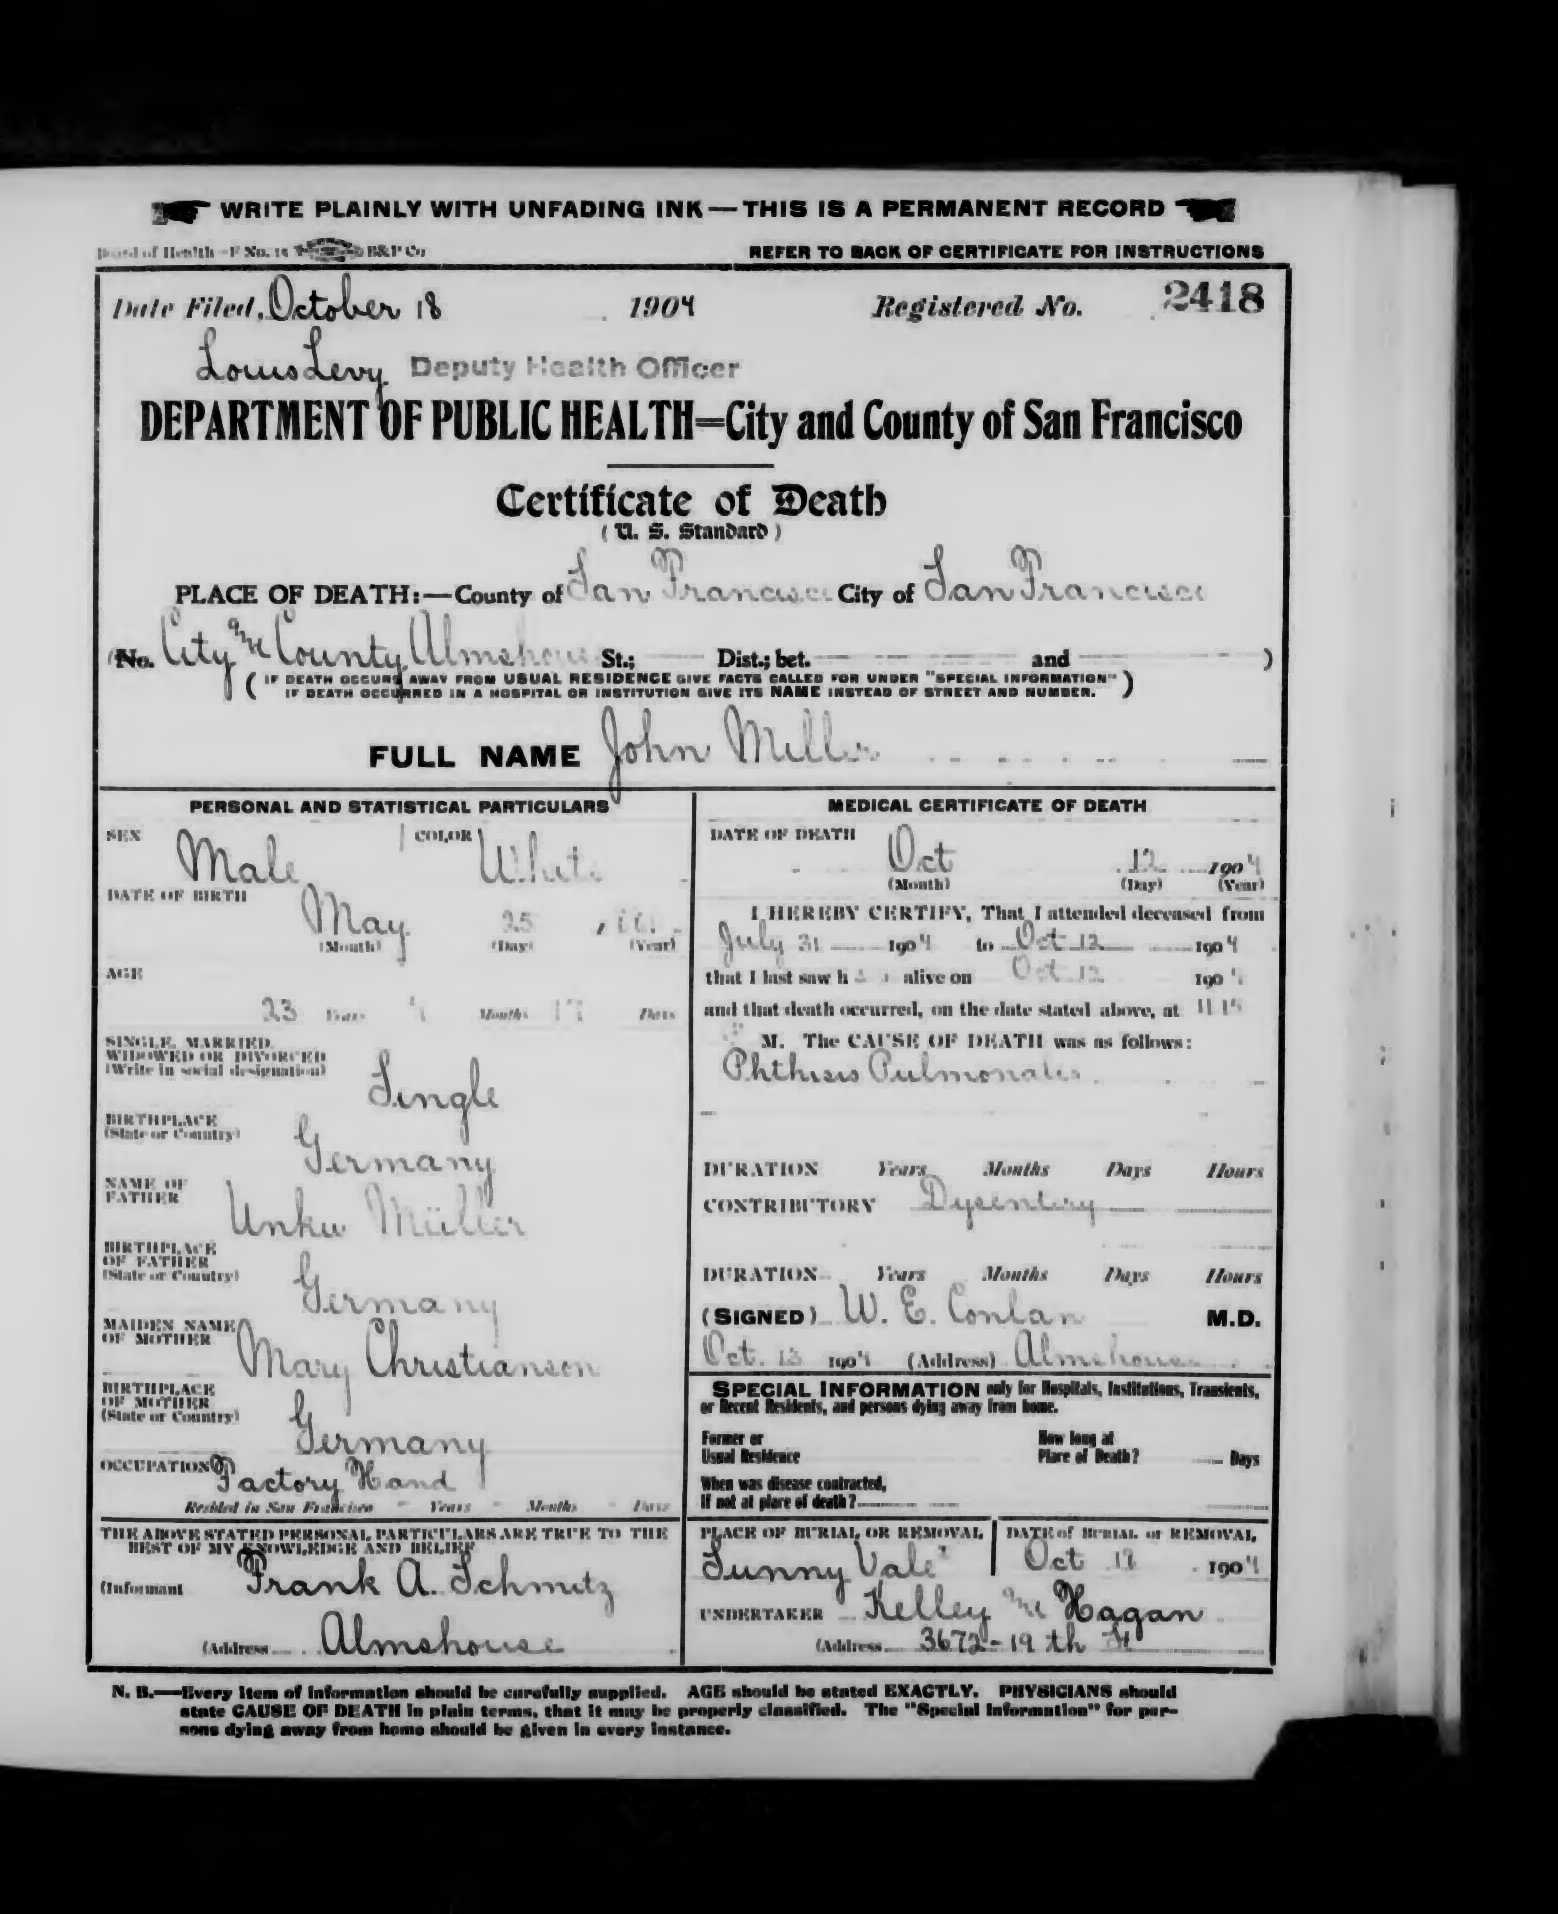 WRITE PLAINLY WITH UNFADING INK—THIS IS A PERMANENT RECORD
Board of Health—F No. 15 B&P Co
REFER TO BACK OF CERTIFICATE FOR INSTRUCTIONS
Date Filed, October 18 1904 Registered No. 2418
Louis Levy Deputy Health Officer
DEPARTMENT OF PUBLIC HEALTH=City and County of San Francisco
Certificate of Death
(U. S. Standard)
PLACE OF DEATH:—County of San Francisco City of San Francisco
(No. City and County Almshouse St.; Dist.; bet. and )
(IF DEATH OCCURS AWAY FROM USUAL RESIDENCE GIVE FACTS CALLED FOR UNDER "SPECIAL INFORMATION"
IF DEATH OCCURRED IN A HOSPITAL OR INSTITUTION GIVE ITS NAME INSTEAD OF STREET AND NUMBER.)
FULL NAME John Miller
PERSONAL AND STATISTICAL PARTICULARS
SEX Male COLOR White
DATE OF BIRTH
May 25
(Month) (Day) (Year)
AGE
23 Years 4 Months 17 Days
SINGLE, MARRIED,
WIDOWED OR DIVORCED
(Write in social designation)
Single
BIRTHPLACE
(State or Country)
Germany
NAME OF
FATHER
Unkn Müller
BIRTHPLACE
OF FATHER
(State or Country)
Germany
MAIDEN NAME
OF MOTHER
Mary Christianson
BIRTHPLACE
OF MOTHER
(State or Country)
Germany
OCCUPATION
Factory Hand
Resided in San Francisco Years Months Days
THE ABOVE STATED PERSONAL PARTICULARS ARE TRUE TO THE
BEST OF MY KNOWLEDGE AND BELIEF
(Informant Frank A. Schmitz
(Address Almshouse
MEDICAL CERTIFICATE OF DEATH
DATE OF DEATH
Oct 12 1904
(Month) (Day) (Year)
I HEREBY CERTIFY, That I attended deceased from
July 31 1904 to Oct 12 1904
that I last saw h alive on Oct 12 1904
and that death occurred, on the date stated above, at 11 15
M. The CAUSE OF DEATH was as follows:
Phthisis Pulmonalis
DURATION Years Months Days Hours
CONTRIBUTORY Dysentery
DURATION Years Months Days Hours
(SIGNED) W. E. Conlan M.D.
Oct. 13 1904 (Address) Almshouse
SPECIAL INFORMATION only for Hospitals, Institutions, Transients,
or Recent Residents, and persons dying away from home.
Former or
Usual Residence
How long at
Place of Death? Days
When was disease contracted,
If not at place of death?
PLACE OF BURIAL OR REMOVAL
Sunny Vale
DATE of BURIAL or REMOVAL
Oct 1904
UNDERTAKER Kelley and Hagan
(Address 3672-19 th St
N. B.—Every item of information should be carefully supplied. AGE should be stated EXACTLY. PHYSICIANS should
state CAUSE OF DEATH in plain terms, that it may be properly classified. The "Special Information" for per-
sons dying away from home should be given in every instance.